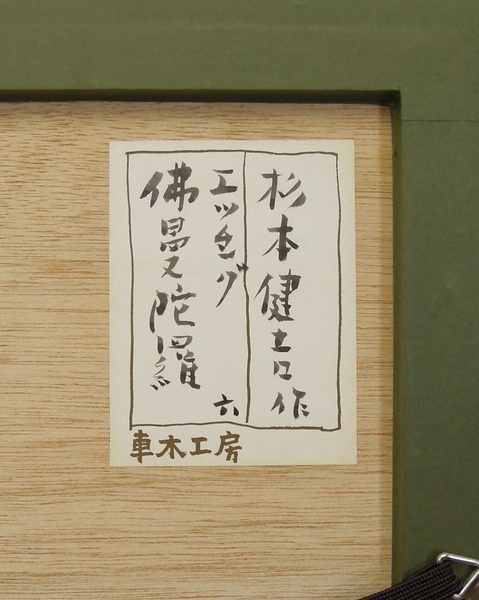 杉本健吉作
エッチング
佛曼陀羅
六
車木工房